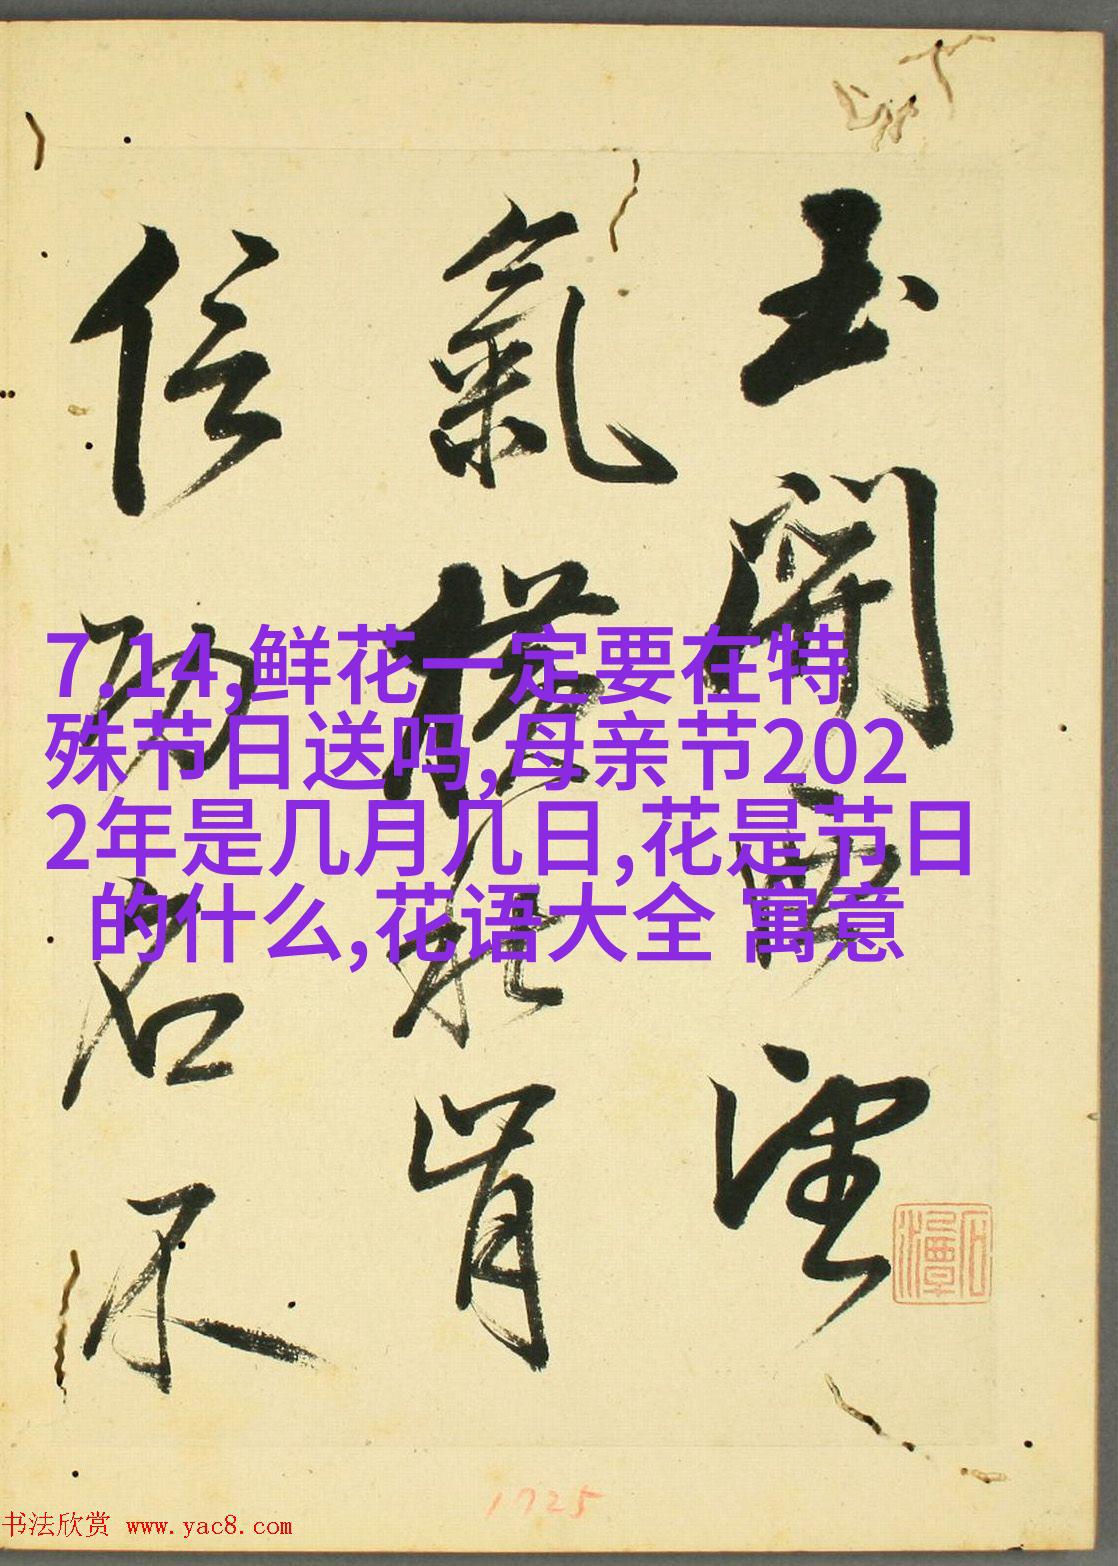 玉關西望
氣橫秋肯
信功名不
7.14,鲜花一定要在特
殊节日送吗,母亲节202
2年是几月几日,花是节日
的什么,花语大全 寓意
1725
书法欣赏 www.yac8.com